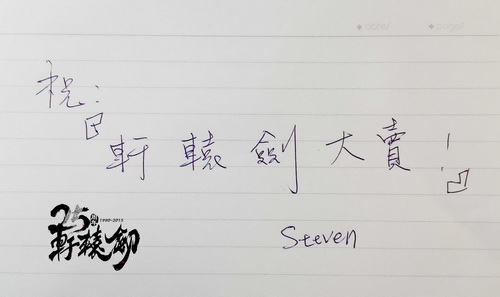 date/ page/
祝：
「軒轅劍大賣！」
25 週年 1990-2015
軒轅劍
Steven